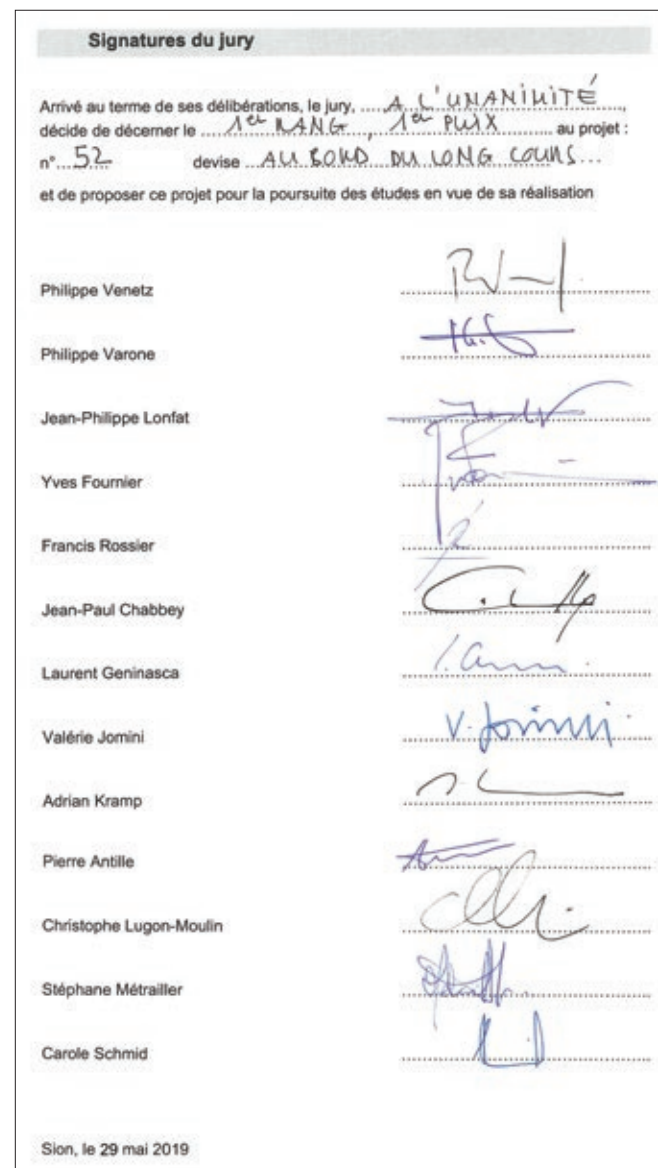 Signatures du jury
Arrivé au terme de ses délibérations, le jury, ..... A L'UNANIMITÉ ,
décide de décerner le ..... 1er RANG , 1er PRIX ..... au projet :
n°....52........ devise ... AU BORD DU LONG COURS...
et de proposer ce projet pour la poursuite des études en vue de sa réalisation
Philippe Venetz
Philippe Varone
Jean-Philippe Lonfat
Yves Fournier
Francis Rossier
Jean-Paul Chabbey
Laurent Geninasca
Valérie Jomini V. Jomini
Adrian Kramp
Pierre Antille
Christophe Lugon-Moulin
Stéphane Métrailler
Carole Schmid
Sion, le 29 mai 2019